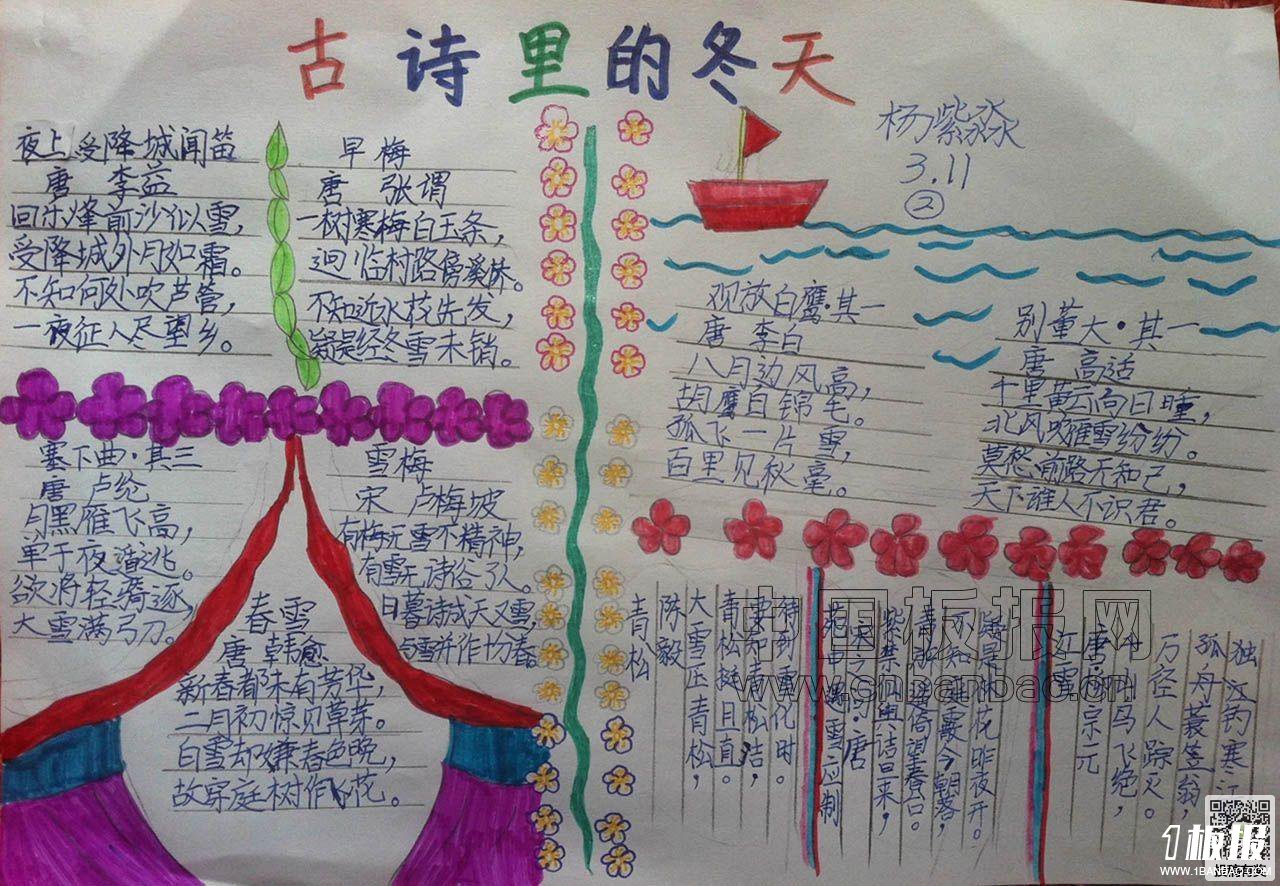 古诗里的冬天
杨紫淼
3.11
②
夜上受降城闻笛
唐 李益
回乐烽前沙似雪，
受降城外月如霜。
不知何处吹芦管，
一夜征人尽望乡。
早梅
唐 张谓
一树寒梅白玉条，
迥临村路傍溪桥。
不知近水花先发，
疑是经冬雪未销。
观放白鹰·其一
唐 李白
八月边风高，
胡鹰白锦毛。
孤飞一片雪，
百里见秋毫。
别董大·其一
唐 高适
千里黄云白日曛，
北风吹雁雪纷纷。
莫愁前路无知己，
天下谁人不识君。
塞下曲·其三
唐 卢纶
月黑雁飞高，
单于夜遁逃。
欲将轻骑逐，
大雪满弓刀。
雪梅
宋 卢梅坡
有梅无雪不精神，
有雪无诗俗了人。
日暮诗成天又雪，
与雪并作十分春。
春雪
唐 韩愈
新春都未有芳华，
二月初惊见草芽。
白雪却嫌春色晚，
故穿庭树作飞花。
青松
陈毅
大雪压青松，
青松挺且直。
要知松
洁，
待到雪化时。
苑中遇雪应制
宋之问·唐
紫禁仙舆诘旦来，
青旂遥倚望春台。
不知庭霰今朝落，
疑是林花昨夜开。
江雪
唐·柳宗元
千山鸟飞绝，
万径人踪灭。
孤舟蓑笠翁，
独 江钓寒江
中国板报网
www.cnbanbao.cn
1板报
WWW.1BANBAO.COM